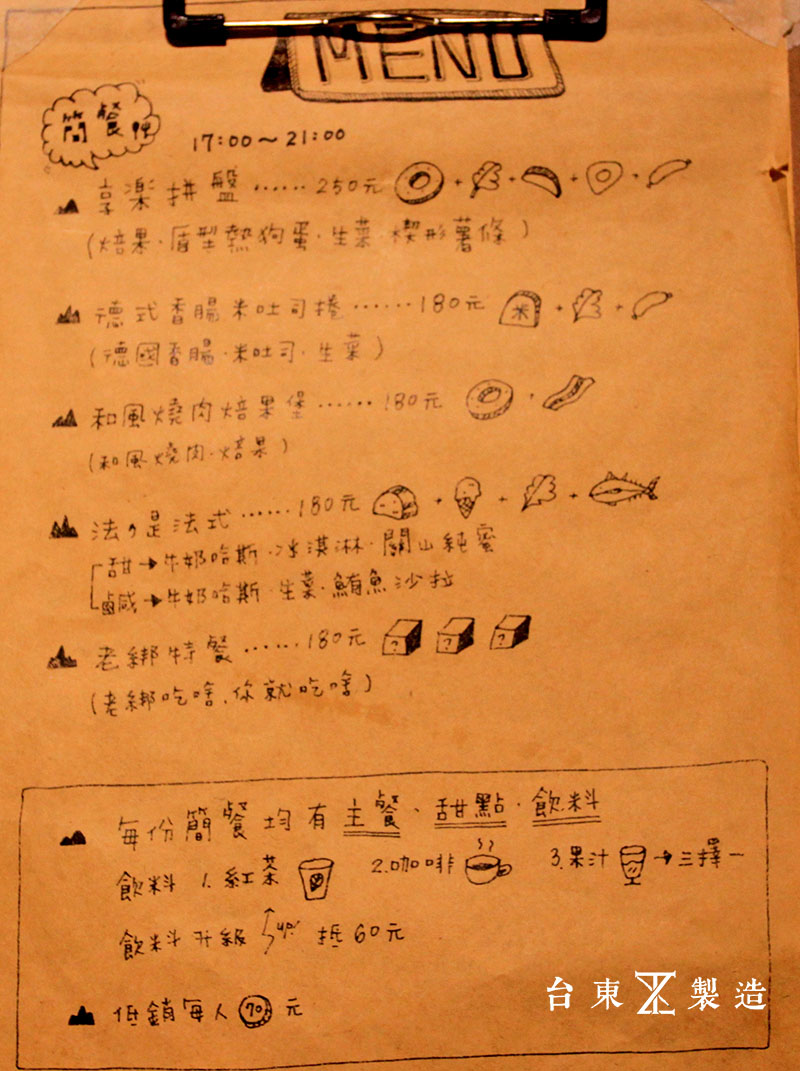 MENU
簡餐
17:00～21:00
享樂拼盤……250元
(焙果·盾型熱狗蛋·生菜·楔形薯條)
德式香腸米吐司捲……180元
米
(德國香腸·米吐司·生菜)
和風燒肉焙果堡……180元
(和風燒肉·焙果)
法り是法式……180元
甜→牛奶哈斯·冰淇淋·關山純蜜
鹹→牛奶哈斯·生菜·鮪魚沙拉
老綁特餐……180元
? ? ?
(老綁吃啥、你就吃啥)
每份簡餐均有主餐、甜點·飲料
飲料 1.紅茶 2.咖啡 3.果汁→三擇一
飲料升級 up! 抵60元
低銷每人70元
台東製造